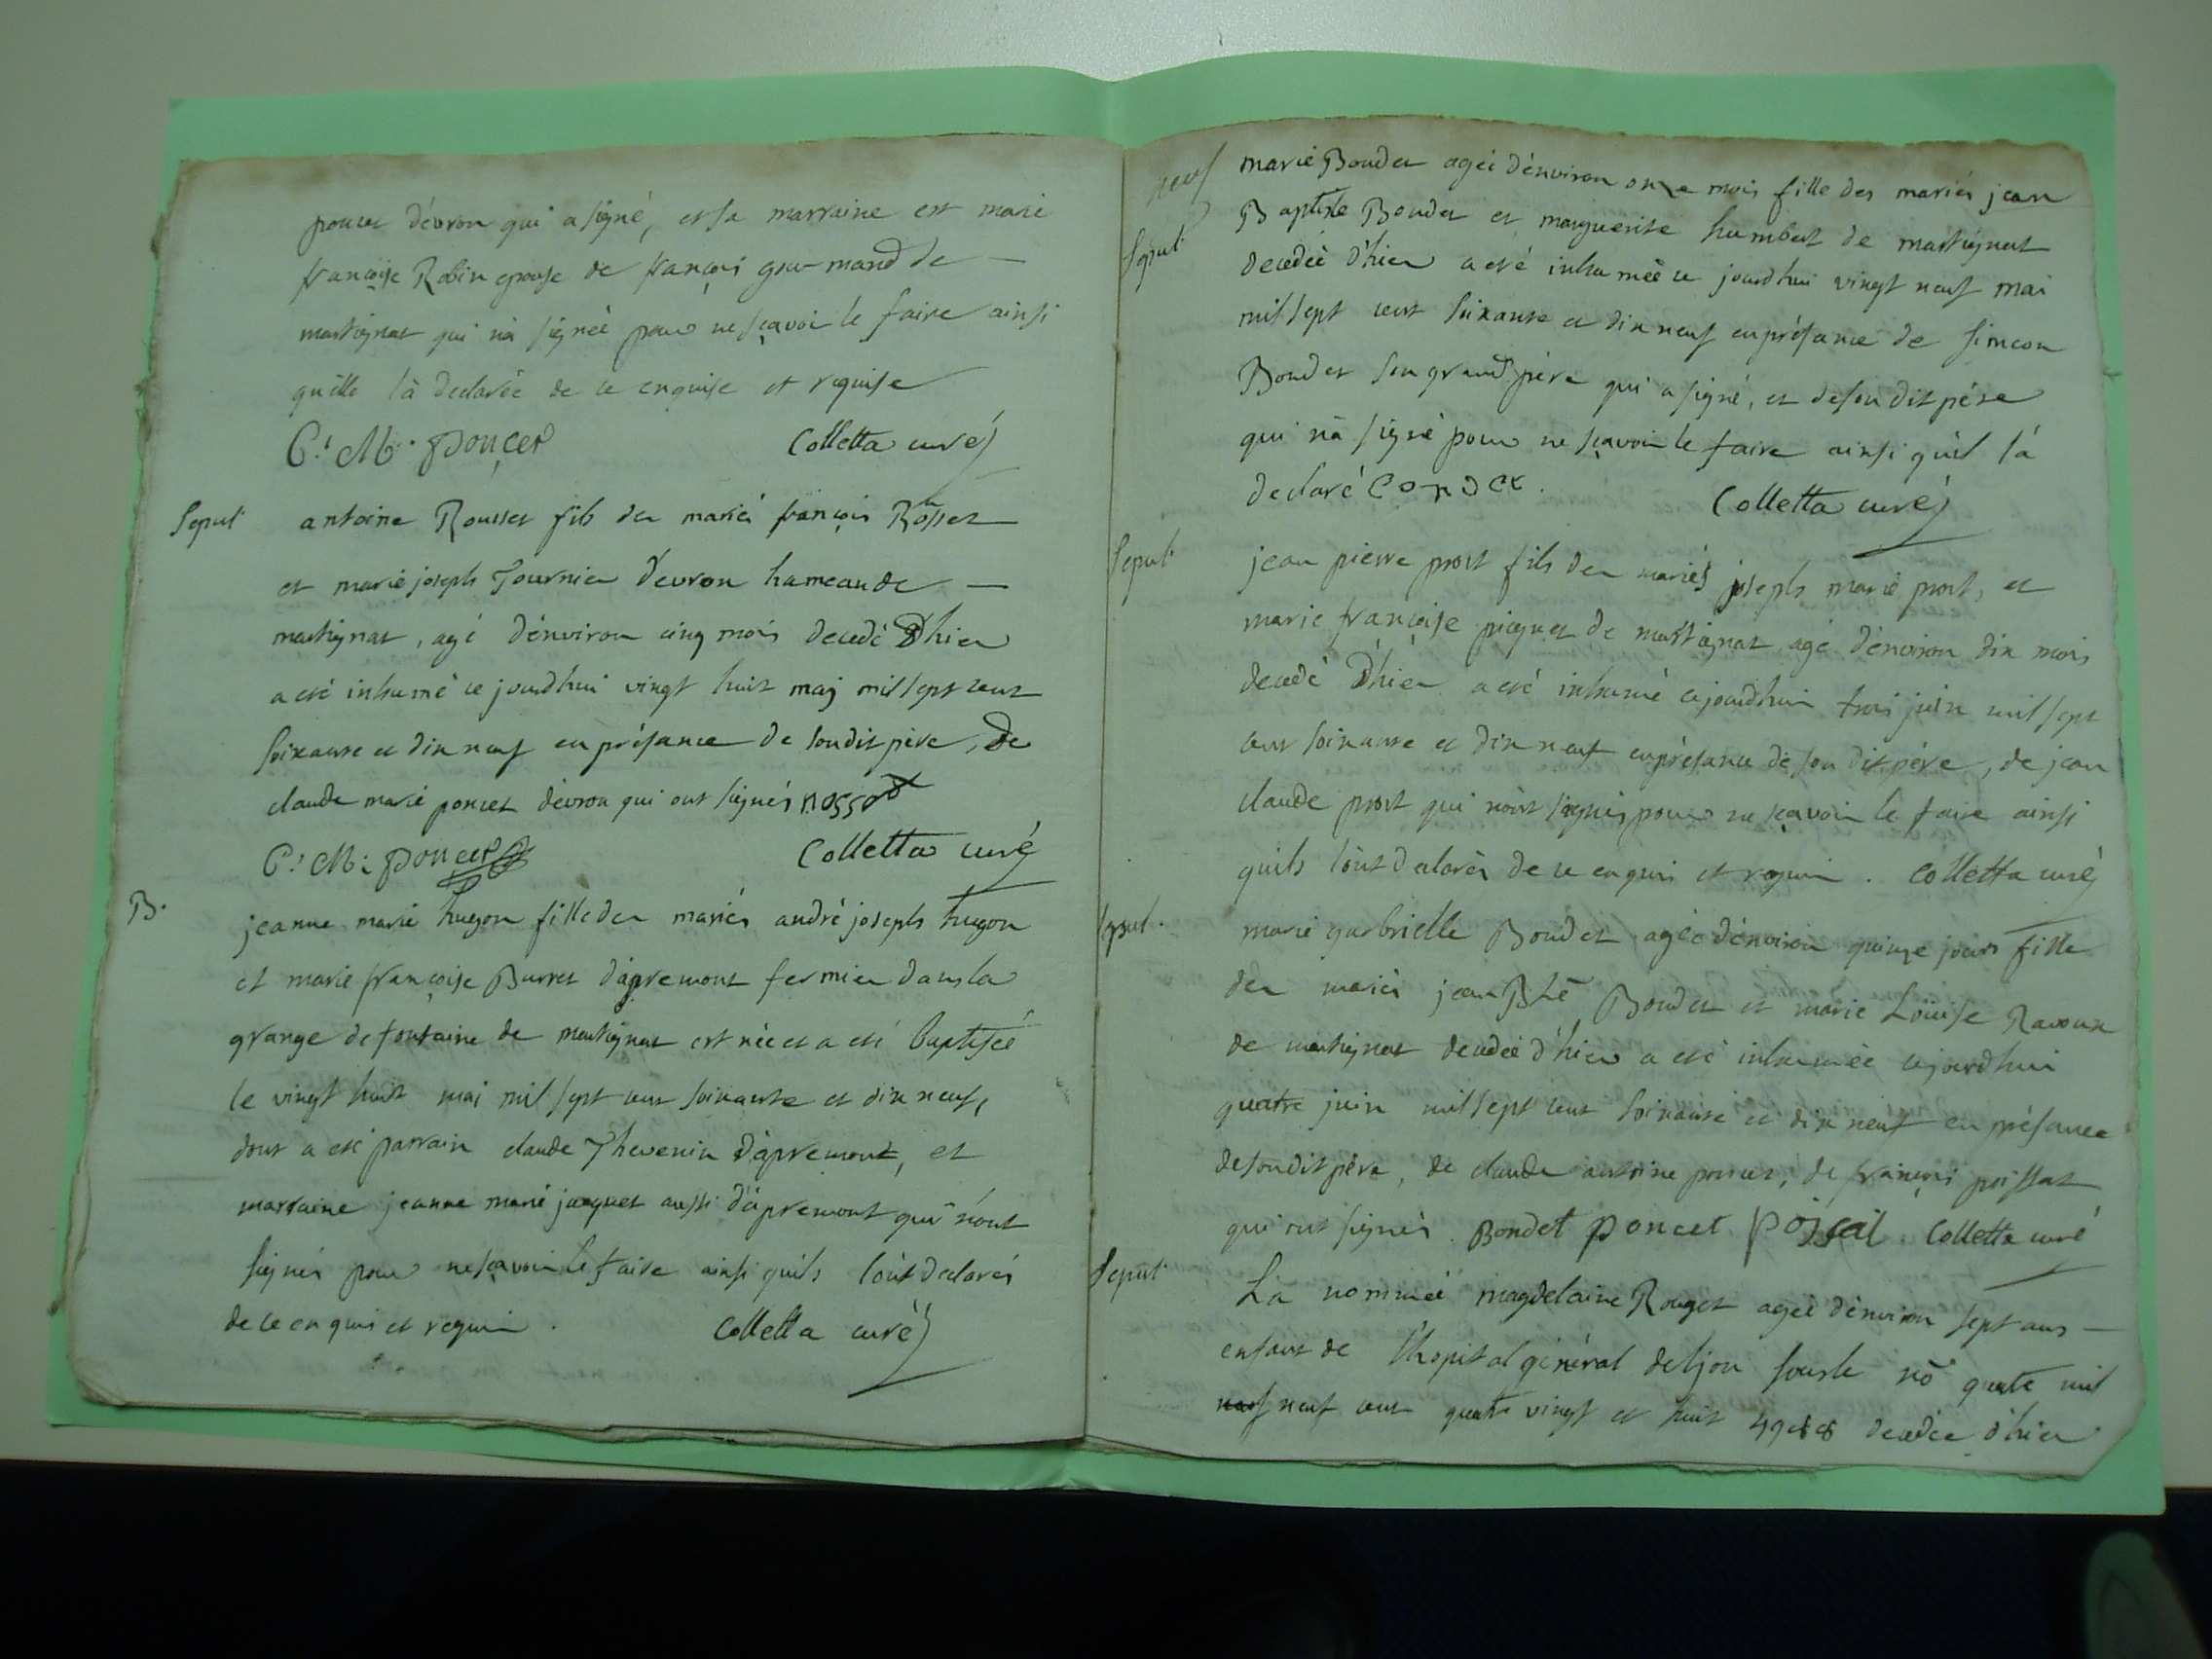 poncet d'évron qui a signé, et sa marraine est marie
françoise Robin epouse de françois gourmand de —
martignat qui n'a signée pour ne sçavoir le faire ainsi
qu'elle l'a declarée de ce enquise et requise
C. M. poncet Colletta curé
Sepul antoine Rousset fils des mariés françois Rosset
et marie joseph Tournier d'evron hameau de —
martignat, agé d'environ cinq mois decedé d'hier
a eté inhumé ce jourdhui vingt huit maj mil sept cent
soixante et dix neuf en présance de son dit père, de
claude marie poncet d'evron qui ont signés rosset
C. M. poncet Colletta curé
B. jeanne marie hugon fille des mariés andré joseph hugon
et marie françoise Burret d'apremont fermier dans la
grange de fontaine de martignat est née et a eté baptisée
le vingt huit mai mil sept cent soixante et dix neuf,
dont a eté parrain claude Thevenin d'apremont, et
marraine jeanne marie jacquet aussi d'apremont qui n'ont
signés pour ne sçavoir le faire ainsi qu'ils l'ont declarés
de ce enquis et requis. Colletta curé
neuf
Sepul marie Bondet agée d'environ onze mois fille des mariés jean
Baptiste Bondet et marguerite humbert de martignat
decedée d'hier a eté inhumée ce jourdhui vingt neuf mai
mil sept cent soixante et dix neuf en présance de simeon
Bondet son grand père qui a signé, et de son dit pére
qui n'a signé pour ne sçavoir le faire ainsi qu'il l'a
declaré Colletta curé
Sepul jean pierre prost fils des mariés joseph marie prost, et
marie françoise piquet de martignat agé d'environ dix mois
decedé d'hier a eté inhumé cejourdhui trois juin mil sept
cent soixante et dix neuf en présance de son dit pére, de jean
claude prost qui n'ont signés pour ne sçavoir le faire ainsi
qu'ils l'ont declarés de ce enquis et requis. Colletta curé
Sepul. marie garbrielle Bondet agée d'environ quinze jours fille
des mariés jean Bte Bondet et marie Loüise Ravoux
de martignat decedée d'hier a eté inhumée cejourdhui
quatre juin mil sept cent soixante et dix neuf en présance
de son dit pére, de claude antoine poncet, de françois poissat
qui ont signés. Bondet poncet Colletta curé
Sepul La nommée magdelaine Rouget agée d'environ sept ans —
enfant de l'hopital général de lyon sous le no quatre mil
neuf neuf cent quatre vingt et huit 4988 decedée d'hier